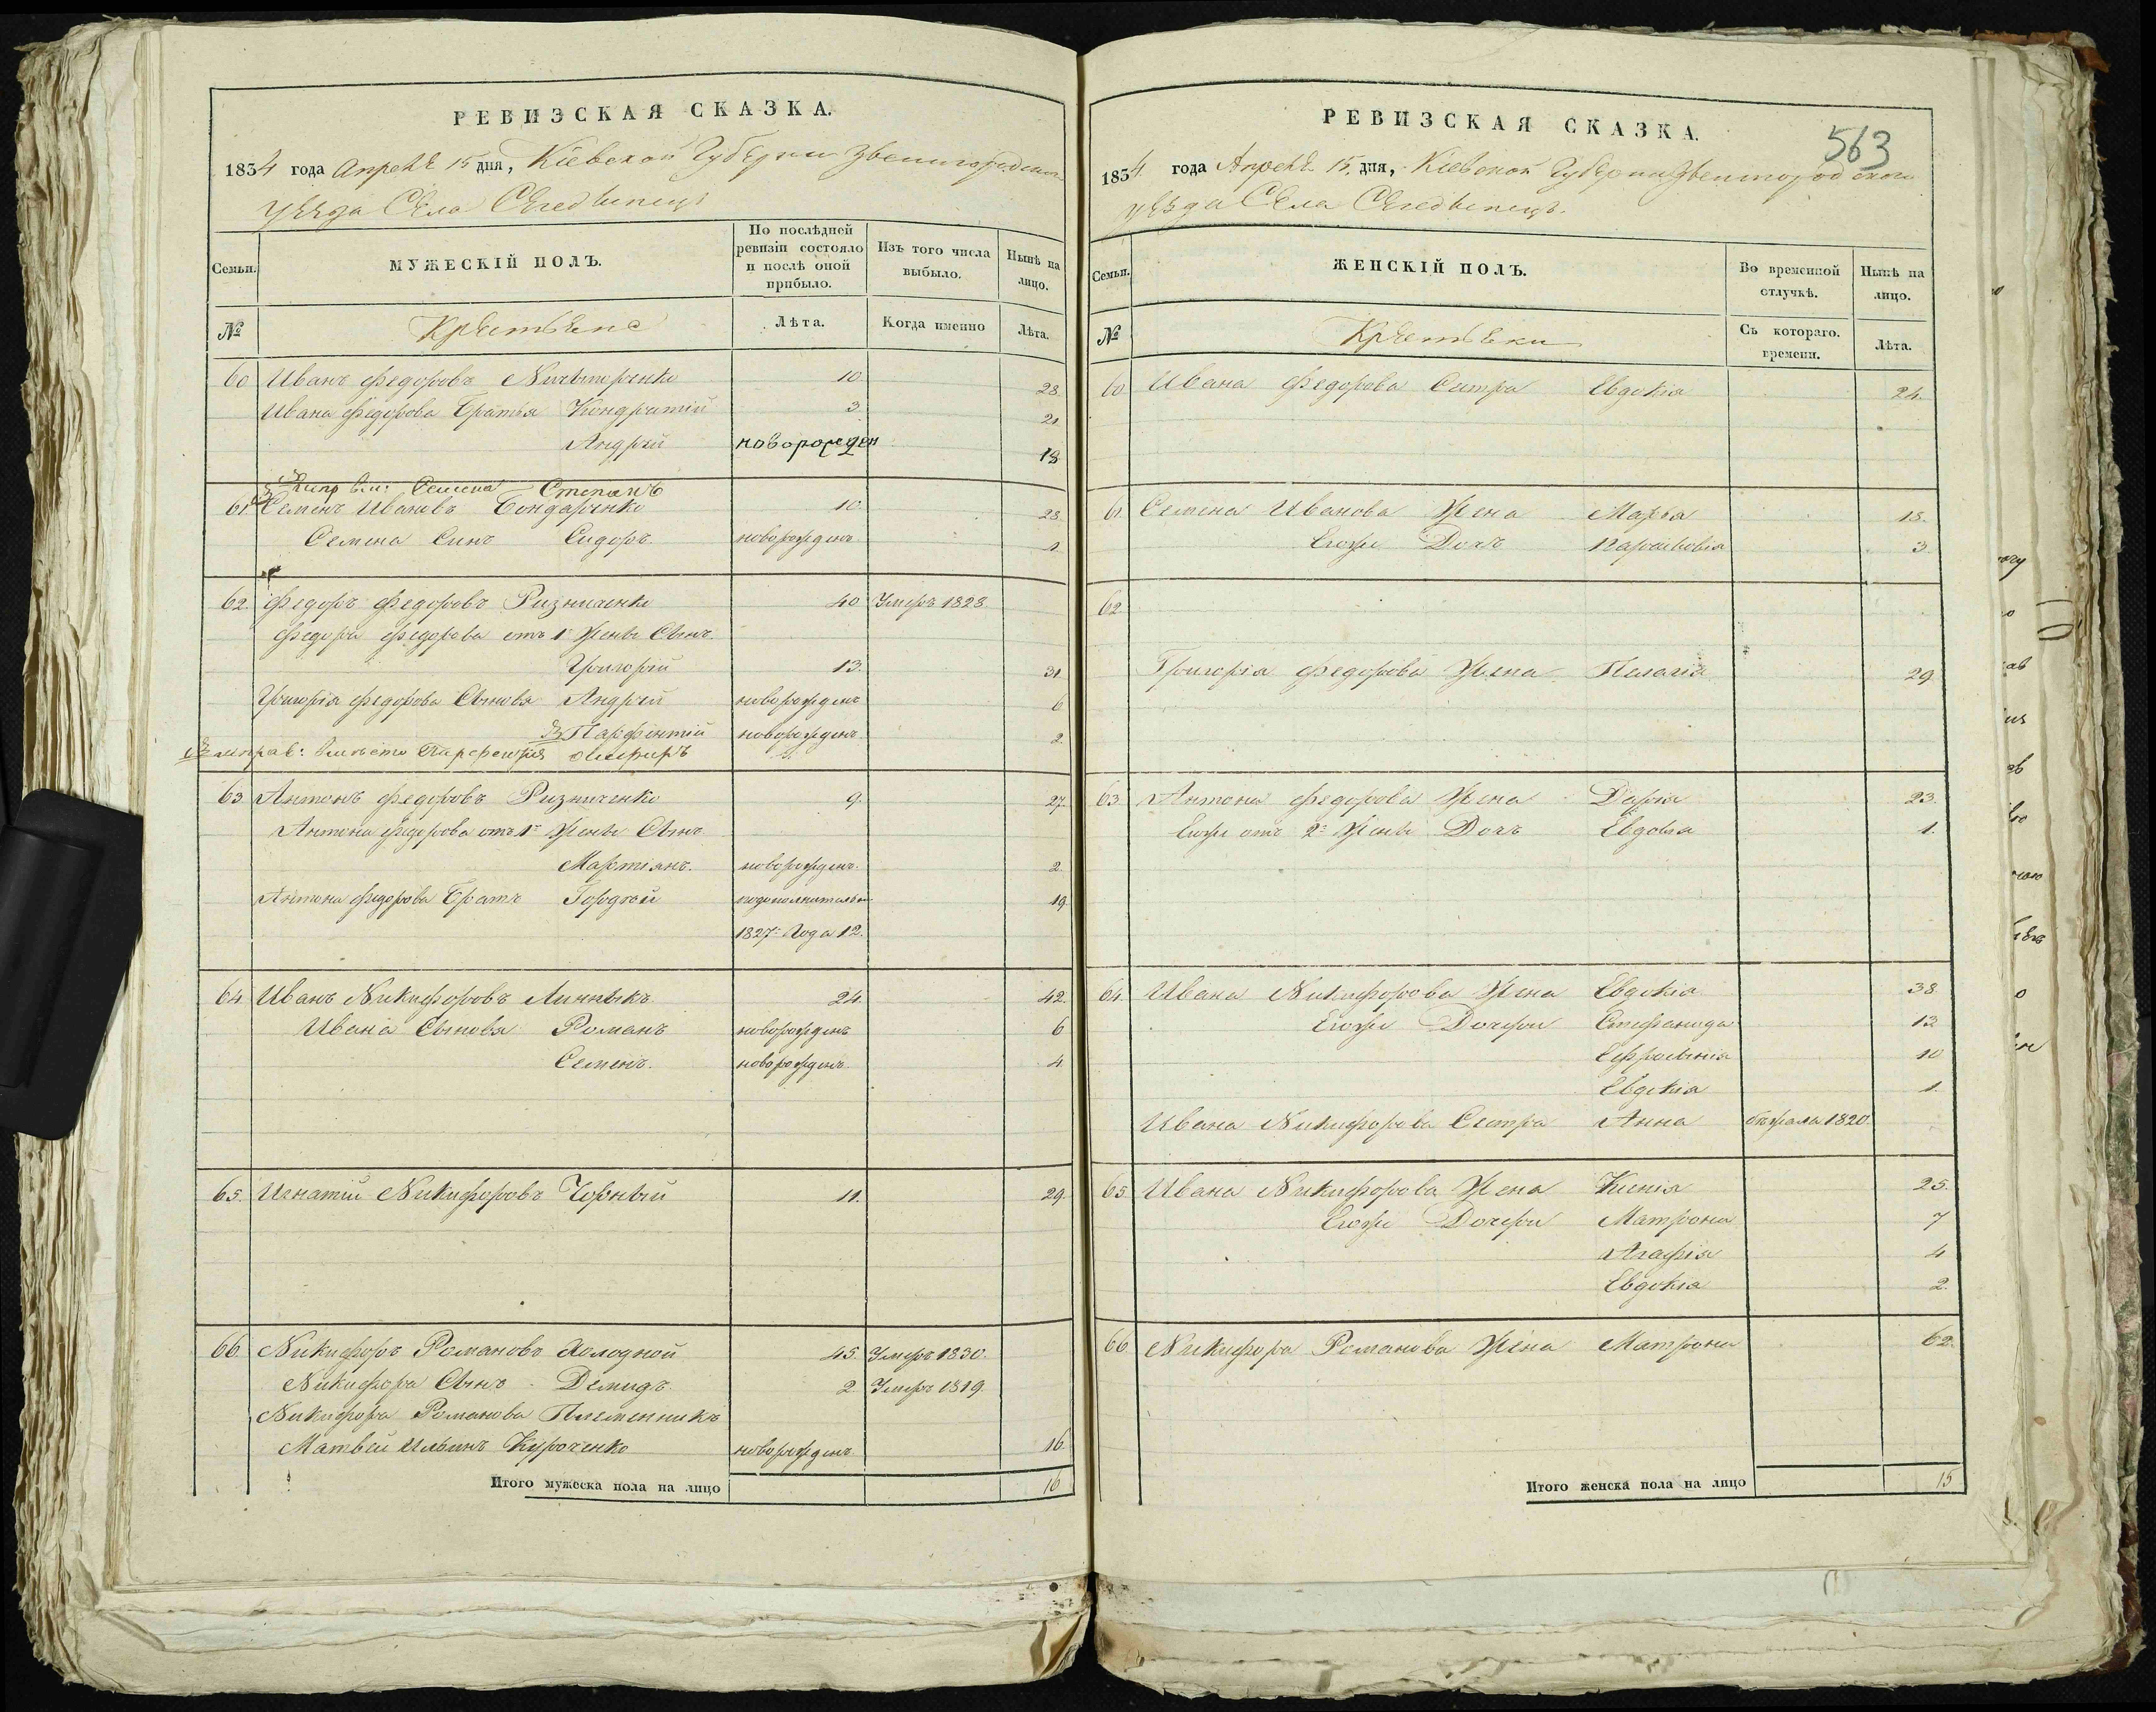 РЕВИЗСКАЯ СКАЗКА.
1834 года Апреля 15 дня, Кіевской Губерніи Звенигородскаго
уезда Села
Семьи.
МУЖЕСКІЙ ПОЛЪ.
По послѣдней ревизіи состояло и послѣ оной прибыло.
Изъ того числа выбыло.
Нынѣ на лицо.
№
Крестьяне
Лѣта.
Когда именно
Лѣта.
60 Иванъ Федоровъ 10 28
Ивана Федорова Братья Кондратій 3 21
Андрей новорожден 18
Семена Степанъ
61. Семенъ Ивановъ Бондаренко 10. 28
Семена Синъ Сидоръ. новорожденъ 1
62. Федоръ Федоровъ Ризниченко 40 Умеръ 1828
Федора Федорова отъ 1й Жены Сынъ.
Григорій 13. 31.
Григорія Федорова Сыновя Андрей новорожденъ 6
Парфентій новорожденъ 2.
Вместо Парфентія
63 Антонъ Федоровъ Ризниченко 9. 27.
Антона Федорова отъ 1й Жены Сынъ
Мартіянъ. новорожденъ. 2.
Антона Федорова Братъ Гордѣй 19.
1827: Года 12.
64 Иванъ Никифоровъ 24. 42.
Ивана Сыновя Романъ новорожденъ 6
Семенъ. новорожденъ. 4.
65. Игнатій Никифоровъ Чорный 11. 29.
66 Никифоръ Романовъ Холодной 45. Умеръ 1830.
Никифора Сынъ Демидъ. 2 Умеръ 1819.
Никифора Романова Племенникъ
Матвей Ильинъ новорожденъ 16.
Итого мужеска пола на лицо 16
РЕВИЗСКАЯ СКАЗКА.
563
1834 года Апреля 15. дня, Кіевской Губерніи Звенигородскаго
уезда Села
Семьи.
ЖЕНСКІЙ ПОЛЪ.
Во временной отлучкѣ.
Нынѣ на лицо.
№
Крестьянки
Съ котораго. времени.
Лѣта.
60 Ивана Федорова Сестра Евдокія 24.
61. Семена Иванова Жена Марья 18.
Егоже Дочь 3.
62
Григорія Федорова Жена Пелагія 29
63 Антона Федорова Жена Дарія 23.
Егоже отъ 2й Жены Дочь 1.
64. Ивана Никифорова Жена Евдокія 38
Егоже Дочери Стефанида 13
Ефросинія 10
Евдокія 1.
Ивана Никифорова Сестра Анна бѣжала 1820.
65 Ивана Никифорова Жена Ксенія 25.
Егоже Дочери Матрона 7
Агафія 4
Евдокія 2.
66 Никифора Романова Жена Матрона 62.
Итого женска пола на лицо 15